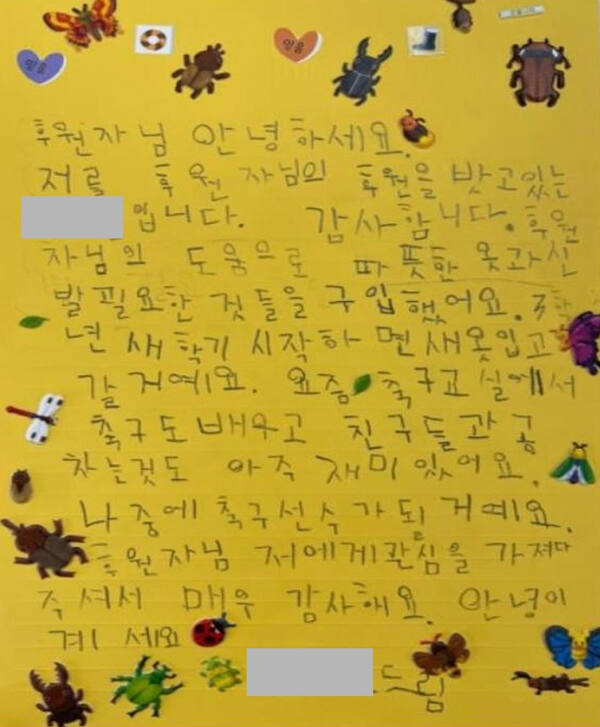 믿음
믿음
후원자님 안녕하세요.
저를 후원자님의 후원을 받고있는
입니다. 감사합니다. 후원
자님의 도움으로 따뜻한 옷과신
발 필요한 것들을 구입했어요. 3학
년 새학기 시작하면 새옷입고
갈 거예요. 요즘 축구교실에서
축구도 배우고 친구들과 공
차는것도 아주 재미있어요.
나중에 축구선수가 될 거예요.
후원자님 저에게관심을 가져다
주셔서 매우 감사해요. 안녕이
계세요
드림